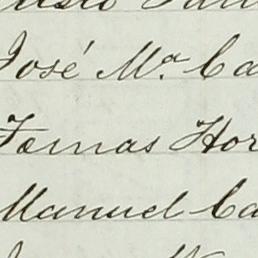 José Mª Ca
Tomas Hor
Manuel Ca